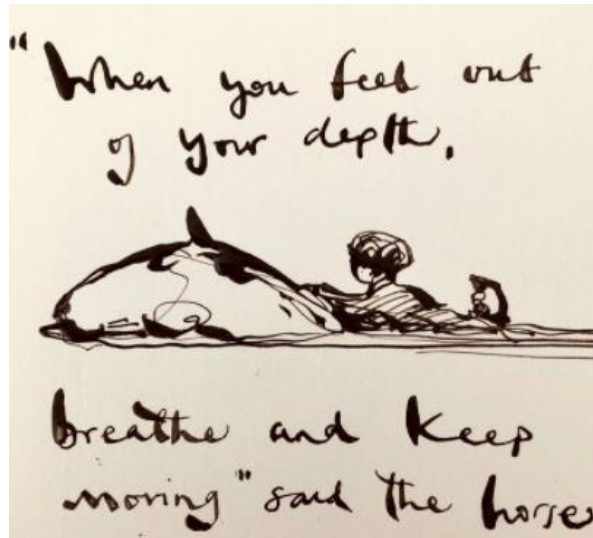 "When you feel out
of your depth.
breathe and keep
moving" said the horse